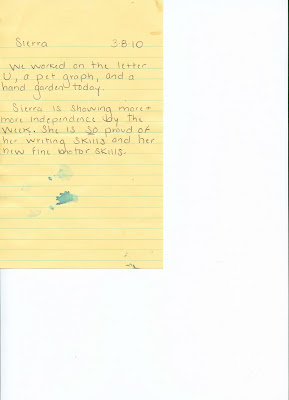 Sierra 3-8-10
We worked on the letter
U, a pet graph, and a
hand garden today.
Sierra is showing more +
more independence by the
week. She is so proud of
her writing skills and her
new fine motor skills.